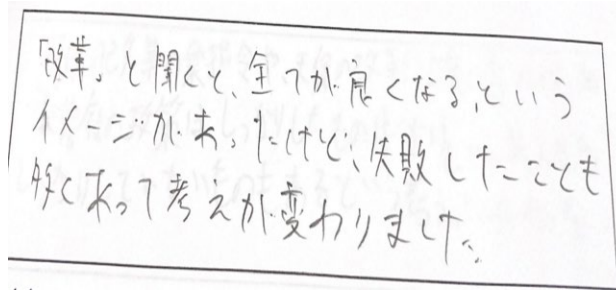 「改革」と聞くと、全てが良くなる、という
イメージがあったけど、失敗したことも
多くあって考えが変わりました。